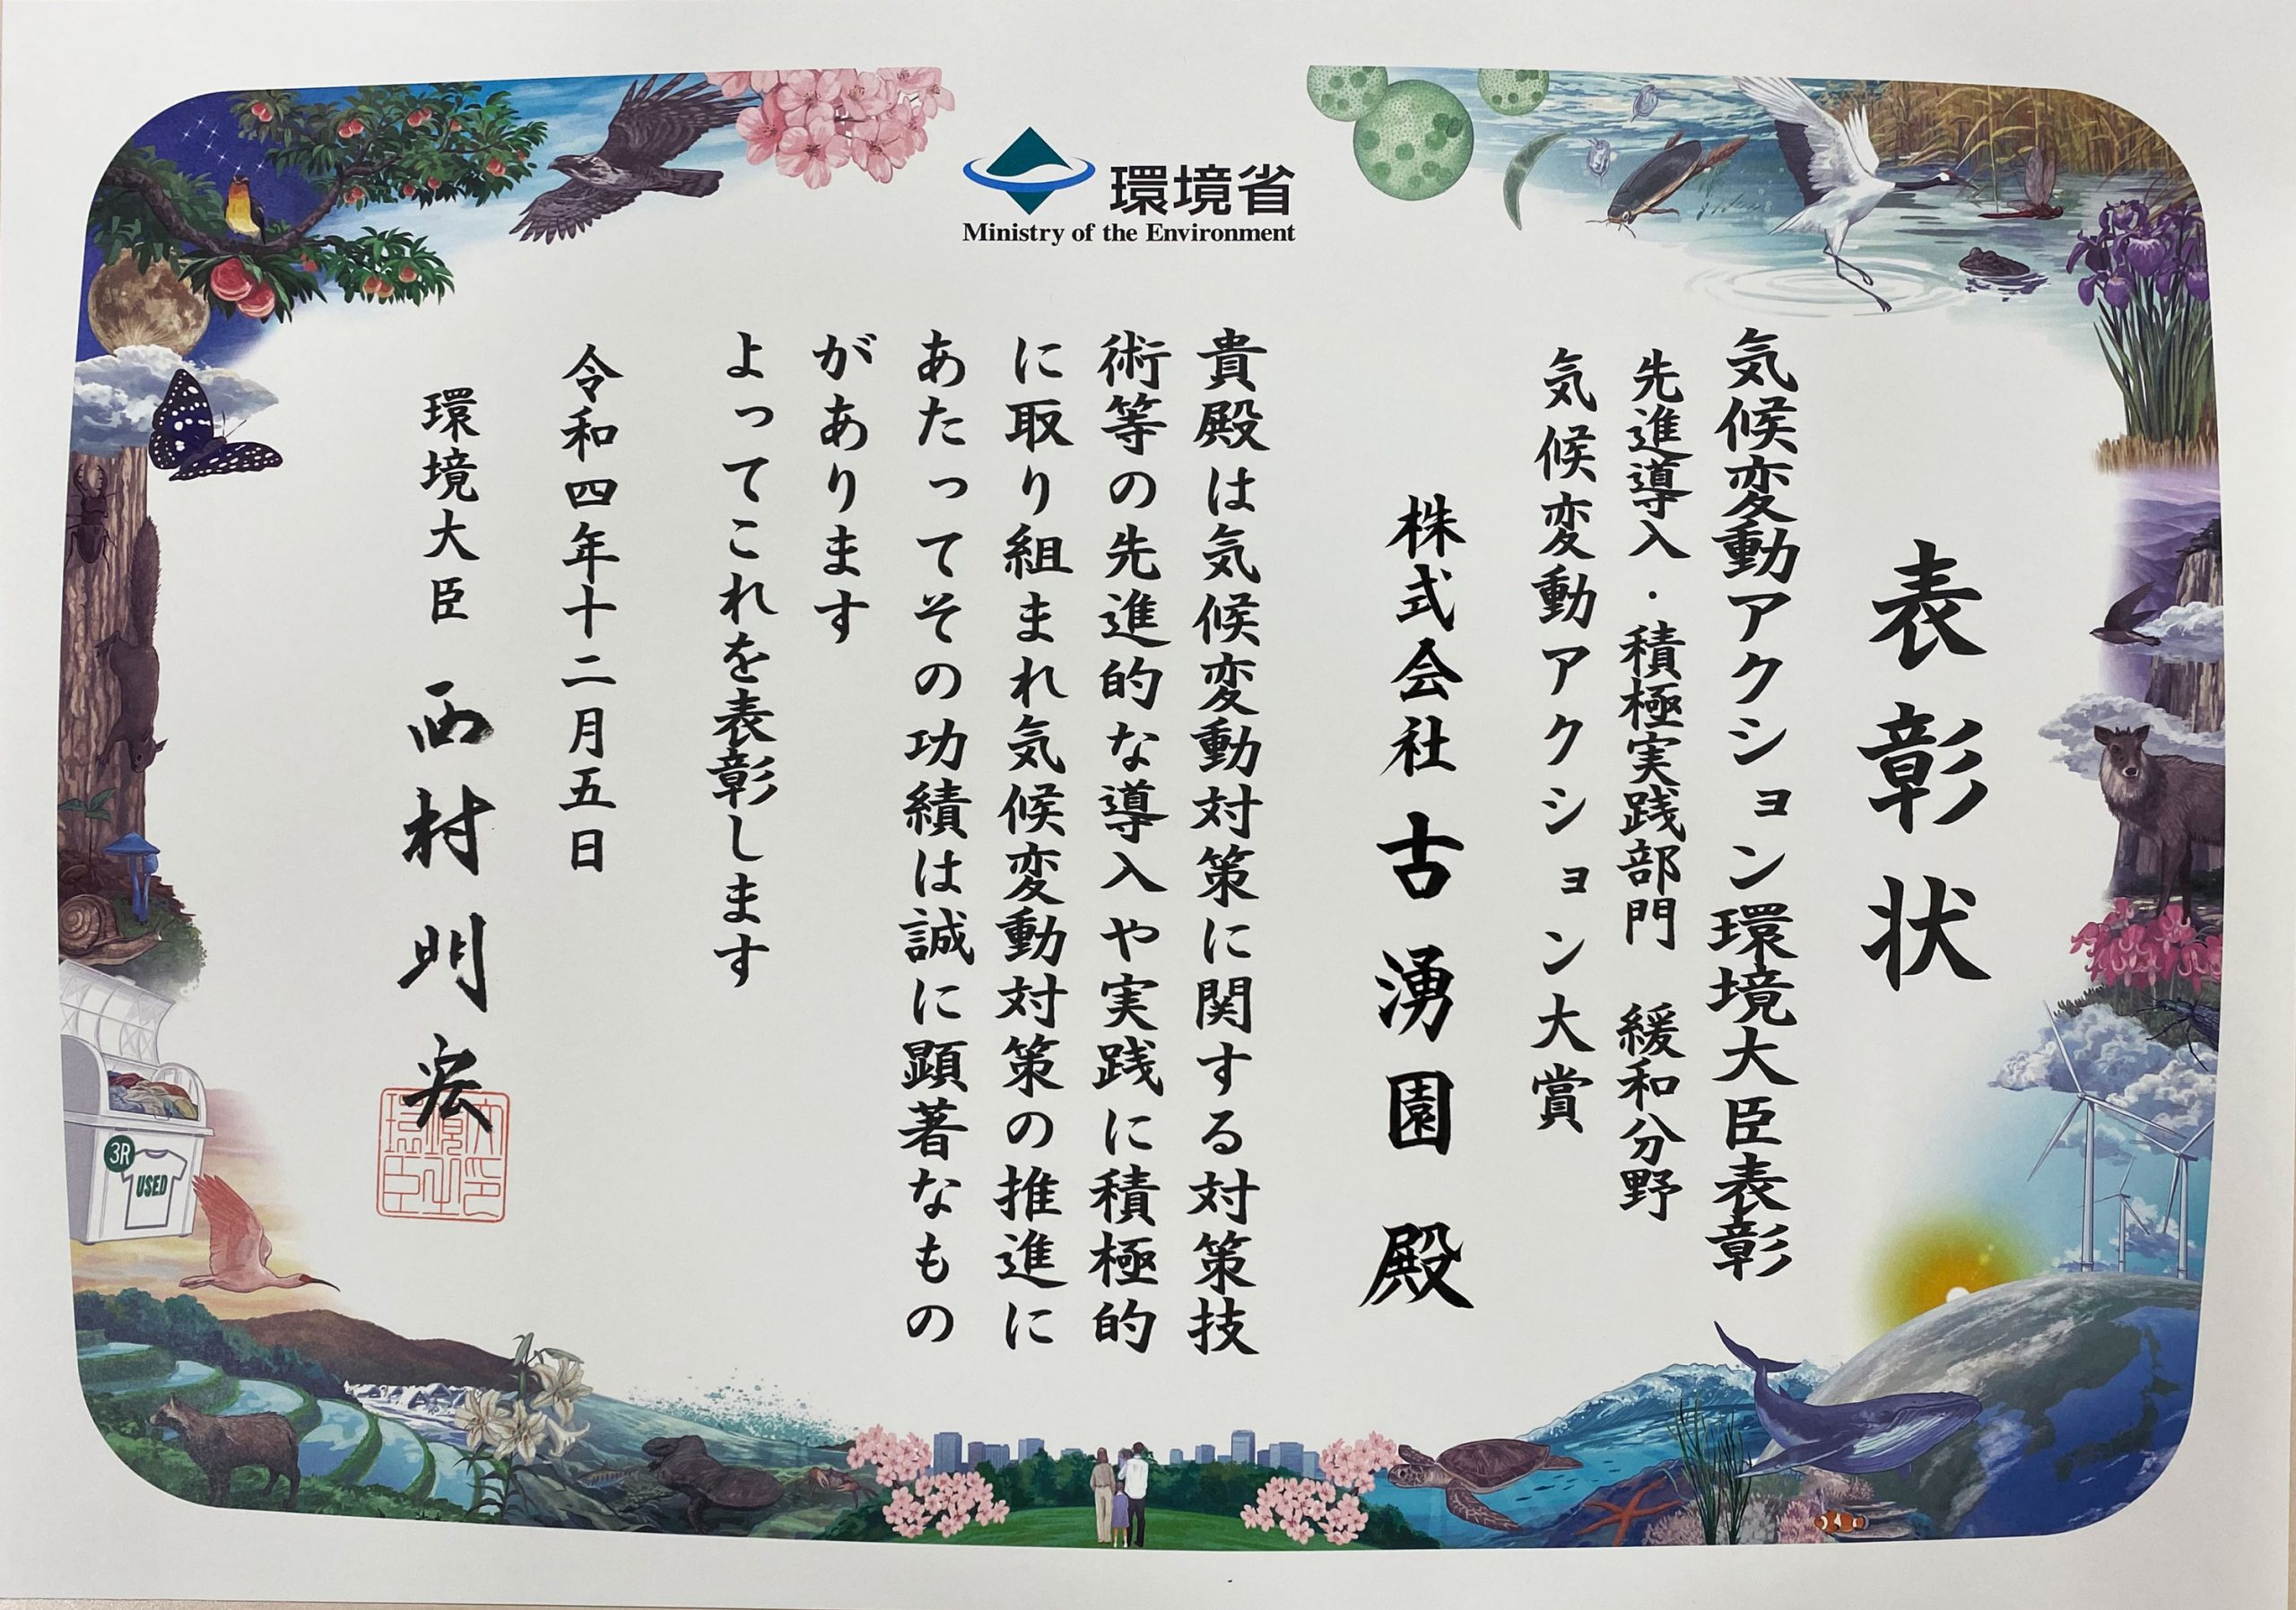 環境省
Ministry of the Environment
表彰状
気候変動アクション環境大臣表彰
先進導入・積極実践部門　緩和分野
気候変動アクション大賞
株式会社古湧園　殿
貴殿は気候変動対策に関する対策技
術等の先進的な導入や実践に積極的
に取り組まれ気候変動対策の推進に
あたってその功績は誠に顕著なもの
があります
よってこれを表彰します
令和四年十二月五日
環境大臣　西村明宏
環境大臣之印
3R
USED